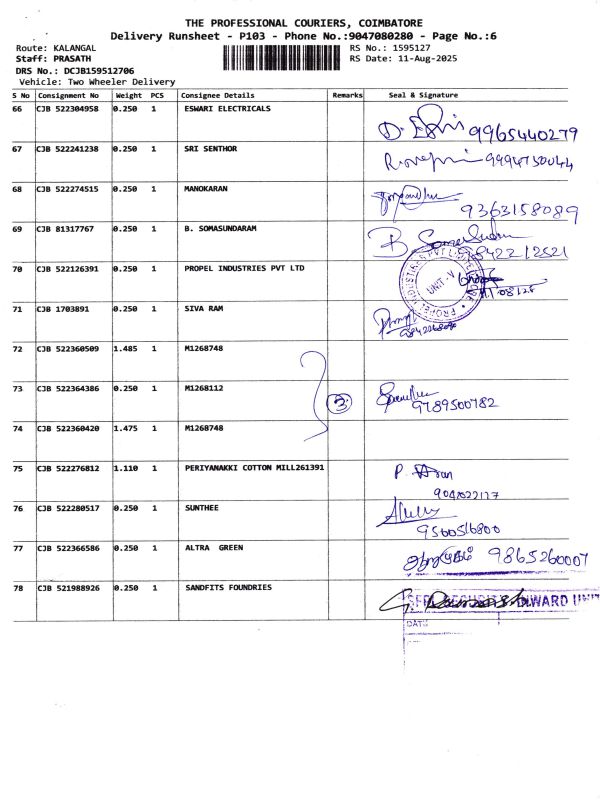 THE PROFESSIONAL COURIERS, COIMBATORE
Delivery Runsheet - P103 - Phone No.:9047080280 - Page No.:6
Route: KALANGAL
RS No.: 1595127
Staff: PRASATH
RS Date: 11-Aug-2025
DRS No.: DCJB159512706
Vehicle: Two Wheeler Delivery
S No Consignment No Weight PCS Consignee Details Remarks Seal & Signature
66 CJB 522304958 0.250 1 ESWARI ELECTRICALS
9965440279
67 CJB 522241238 0.250 1 SRI SENTHOR
9994750044
68 CJB 522274515 0.250 1 MANOKARAN
9363158089
69 CJB 81317767 0.250 1 B. SOMASUNDARAM
B
70 CJB 522126391 0.250 1 PROPEL INDUSTRIES PVT LTD
UNIT-V
71 CJB 1703891 0.250 1 SIVA RAM
72 CJB 522360509 1.485 1 M1268748
73 CJB 522364386 0.250 1 M1268112 3
9789500782
74 CJB 522360420 1.475 1 M1268748
75 CJB 522276812 1.110 1 PERIYANAKKI COTTON MILL261391
76 CJB 522280517 0.250 1 SUNTHEE
9500516800
77 CJB 522366586 0.250 1 ALTRA GREEN 9865260007
78 CJB 521988926 0.250 1 SANDFITS FOUNDRIES
DATE